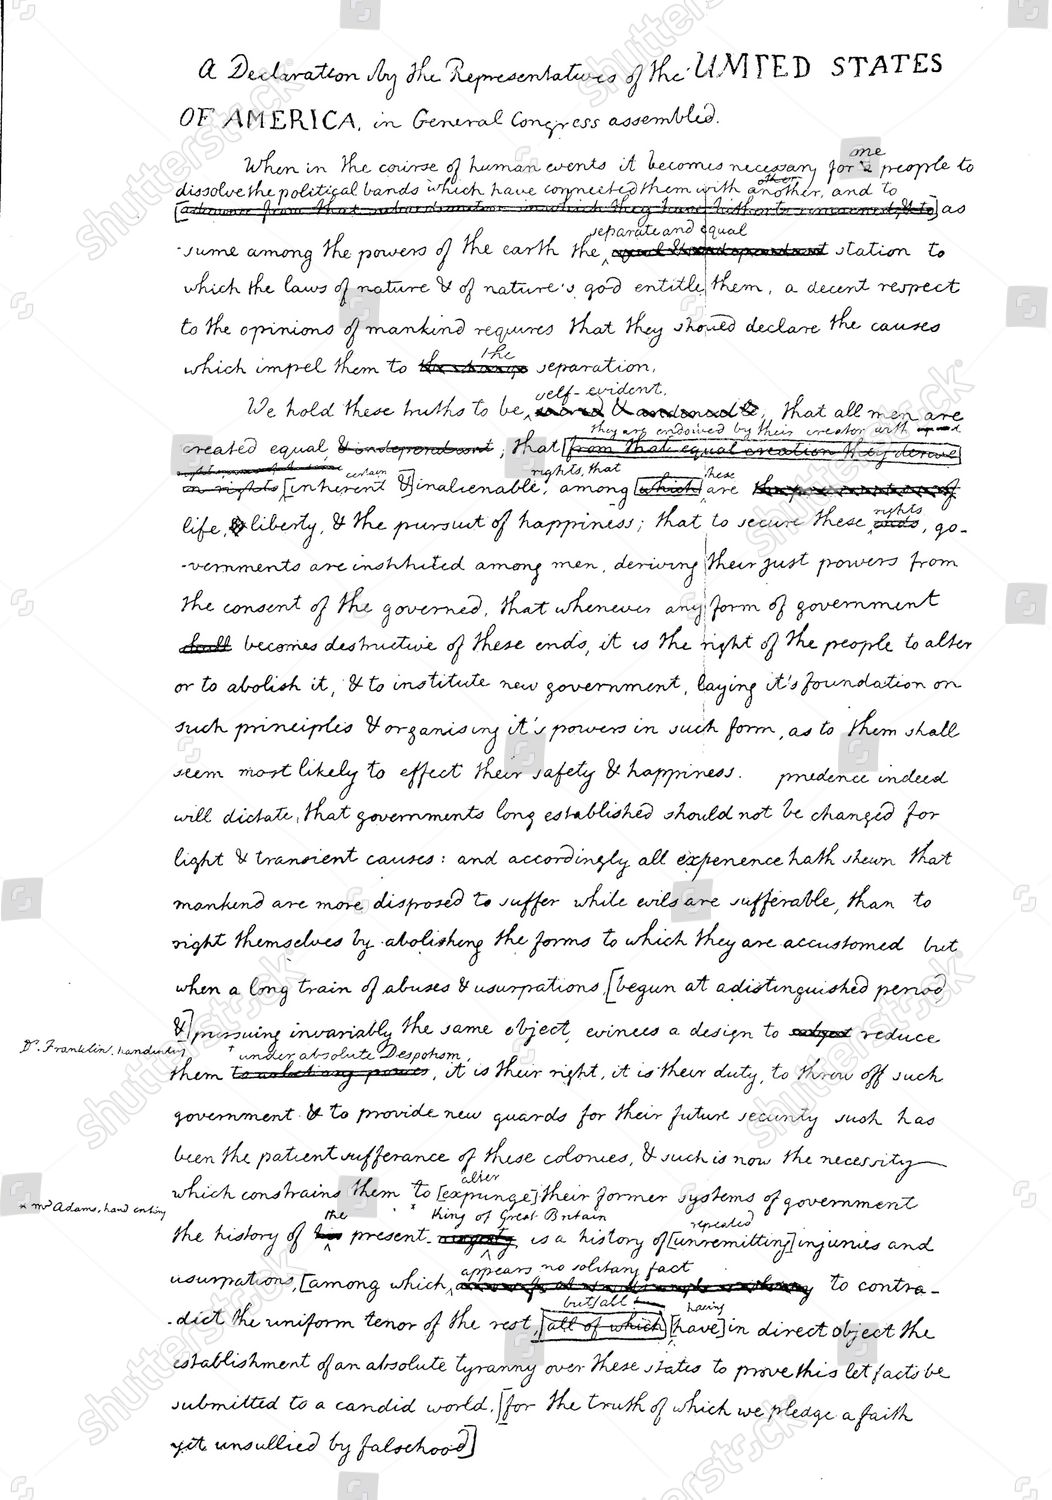 a Declaration by the Representatives of the UNITED STATES
OF AMERICA, in General Congress assembled.
one
When in the course of human events it becomes necessary for a people to
other
dissolve the political bands which have connected them with another, and to
[advance from that subordination in which they have hitherto remained, & to] as
separate and equal
-sume among the powers of the earth the equal & independent station to
which the laws of nature & of nature's god entitle them, a decent respect
to the opinions of mankind requires that they should declare the causes
the
which impel them to the change separation.
self-evident,
We hold these truths to be sacred & undeniable, that all men are
they are endowed by their creator with
created equal, & independent; that [from that equal creation they derive
rights, that
certain these
in rights [inherent &] inalienable, among [which] are the preservation of
rights
life, & liberty, & the pursuit of happiness; that to secure these ends, go-
-vernments are instituted among men, deriving their just powers from
the consent of the governed, that whenever any form of government
shall becomes destructive of these ends, it is the right of the people to alter
or to abolish it, & to institute new government, laying it's foundation on
such principles & organising it's powers in such form, as to them shall
seem most likely to effect their safety & happiness. prudence indeed
will dictate, that governments long established should not be changed for
light & transient causes: and accordingly all experience hath shewn that
mankind are more disposed to suffer while evils are sufferable, than to
right themselves by abolishing the forms to which they are accustomed but
when a long train of abuses & usurpations, [begun at a distinguished period
&] pursuing invariably the same object, evinces a design to subject reduce
Dr. Franklin, handwriting
under absolute Despotism,
them to absolute power, it is their right, it is their duty, to throw off such
government & to provide new guards for their future security such has
been the patient sufferance of these colonies, & such is now the necessity
alter
which constrains them to [expunge] their former systems of government
* Mr Adams, hand writing
the * King of Great Britain repeated
the history of his present majesty, is a history of [unremitting] injuries and
appears no solitary fact
usurpations, [among which, to contra-
but all having
-dict the uniform tenor of the rest, [all of which] [have] in direct object the
establishment of an absolute tyranny over these states to prove this let facts be
submitted to a candid world, [for the truth of which we pledge a faith
yet unsullied by falsehood]
shutterstock